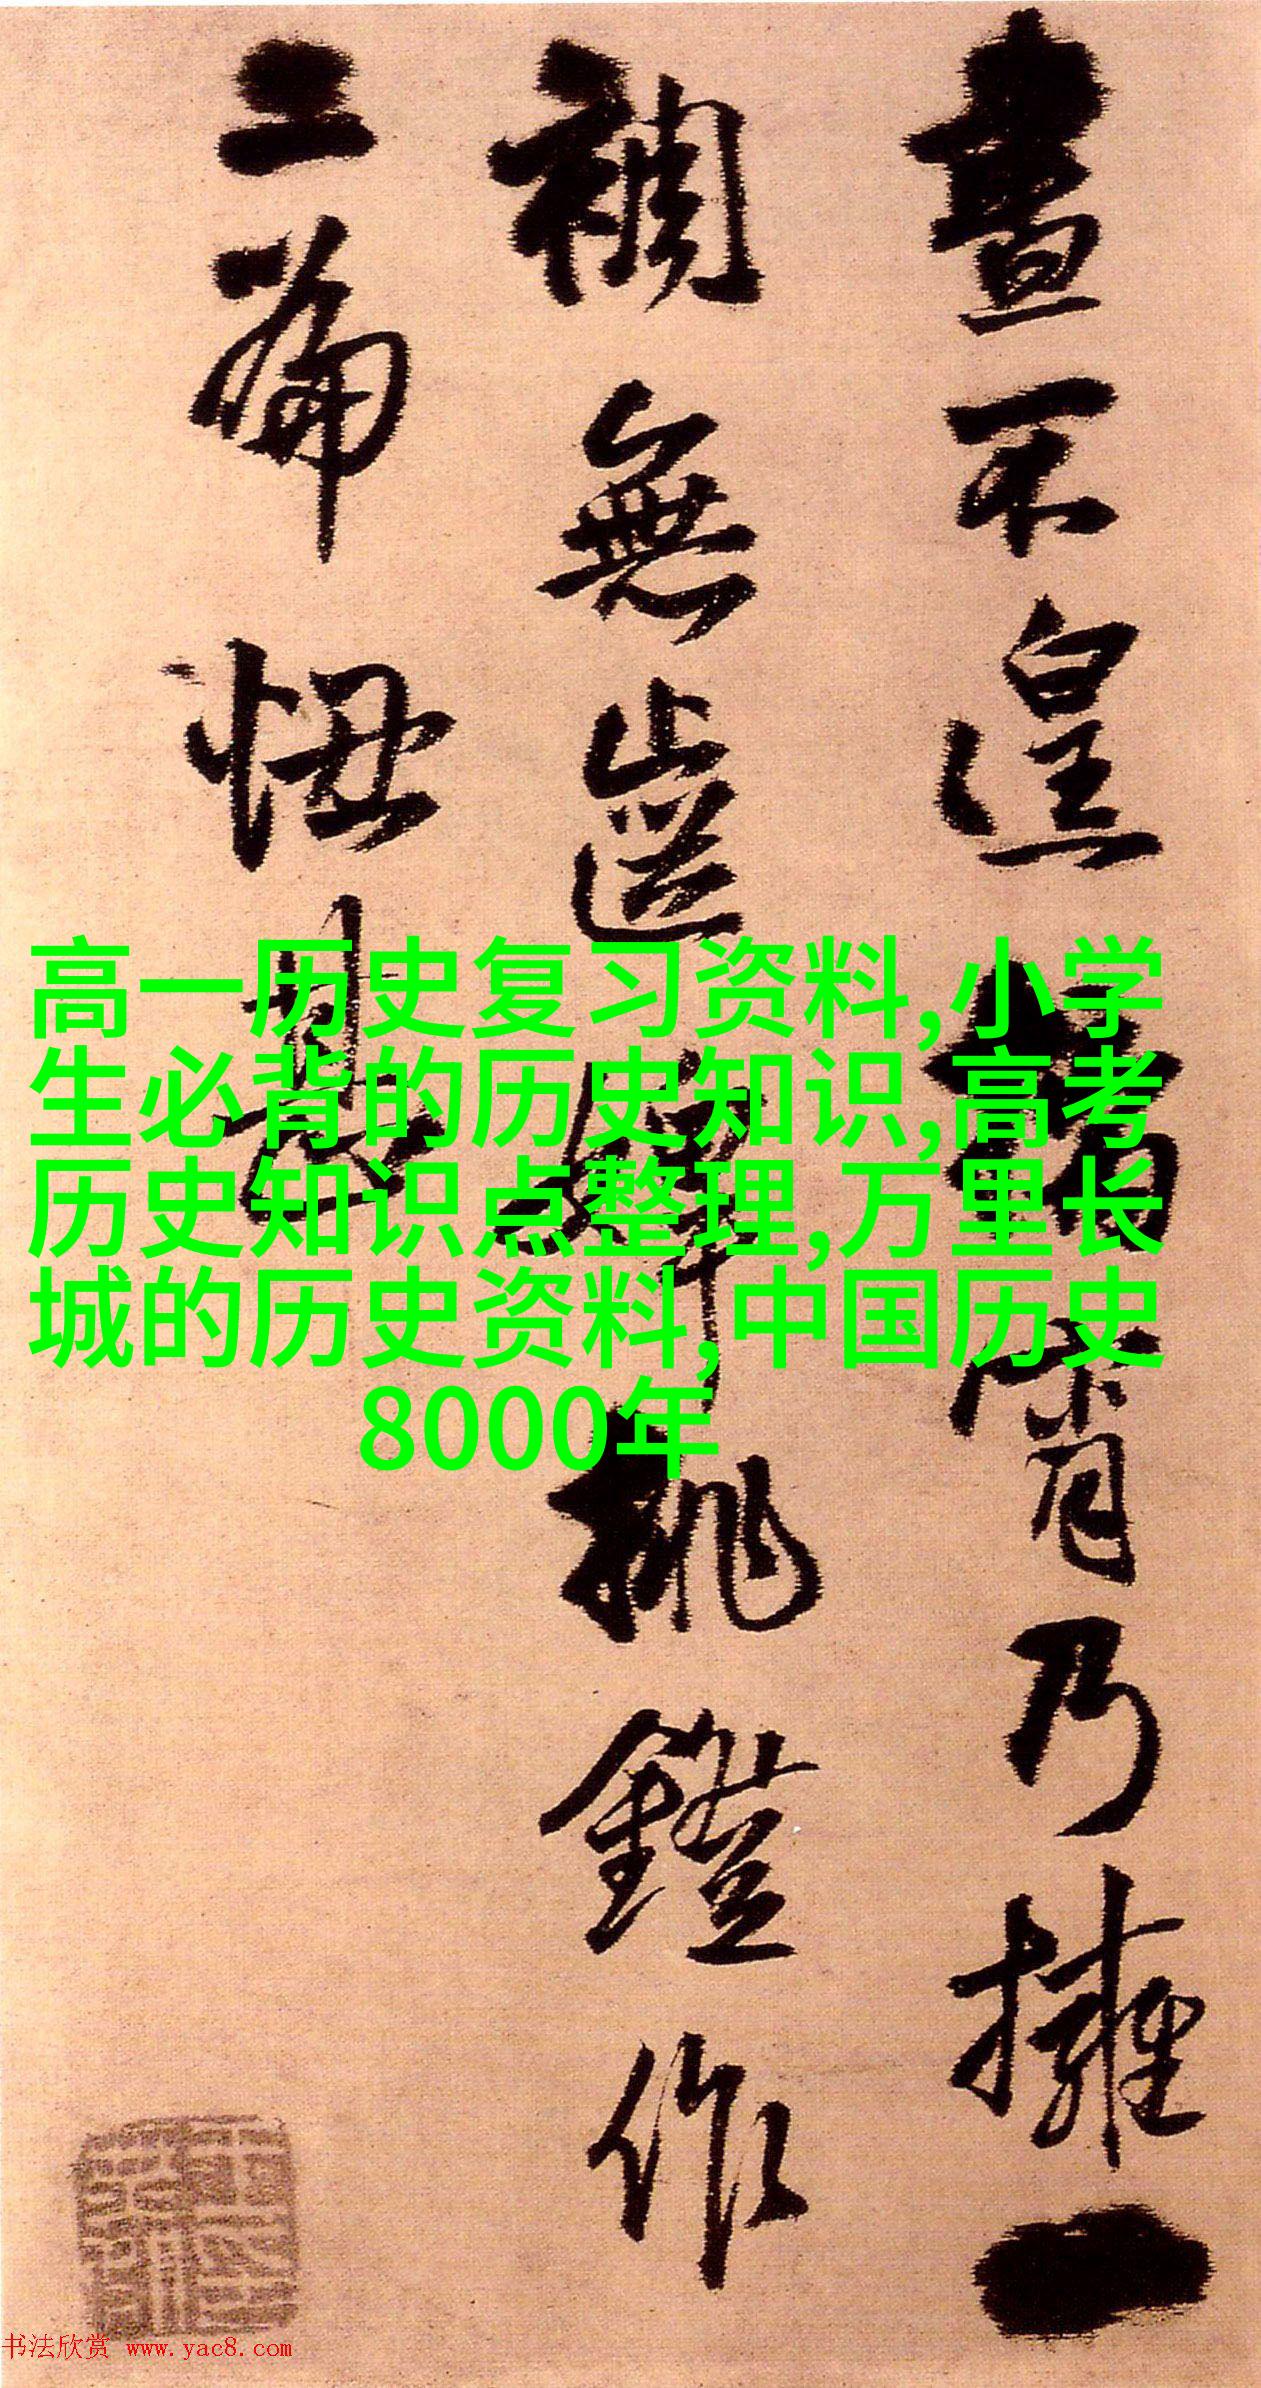 晝不遑宵乃擁一
裯無挑鐙作
二篇
高一历史复习资料,小学
生必背的历史知识,高考
历史知识点整理,万里长
城的历史资料,中国历史
8000年
书法欣赏 www.yac8.com